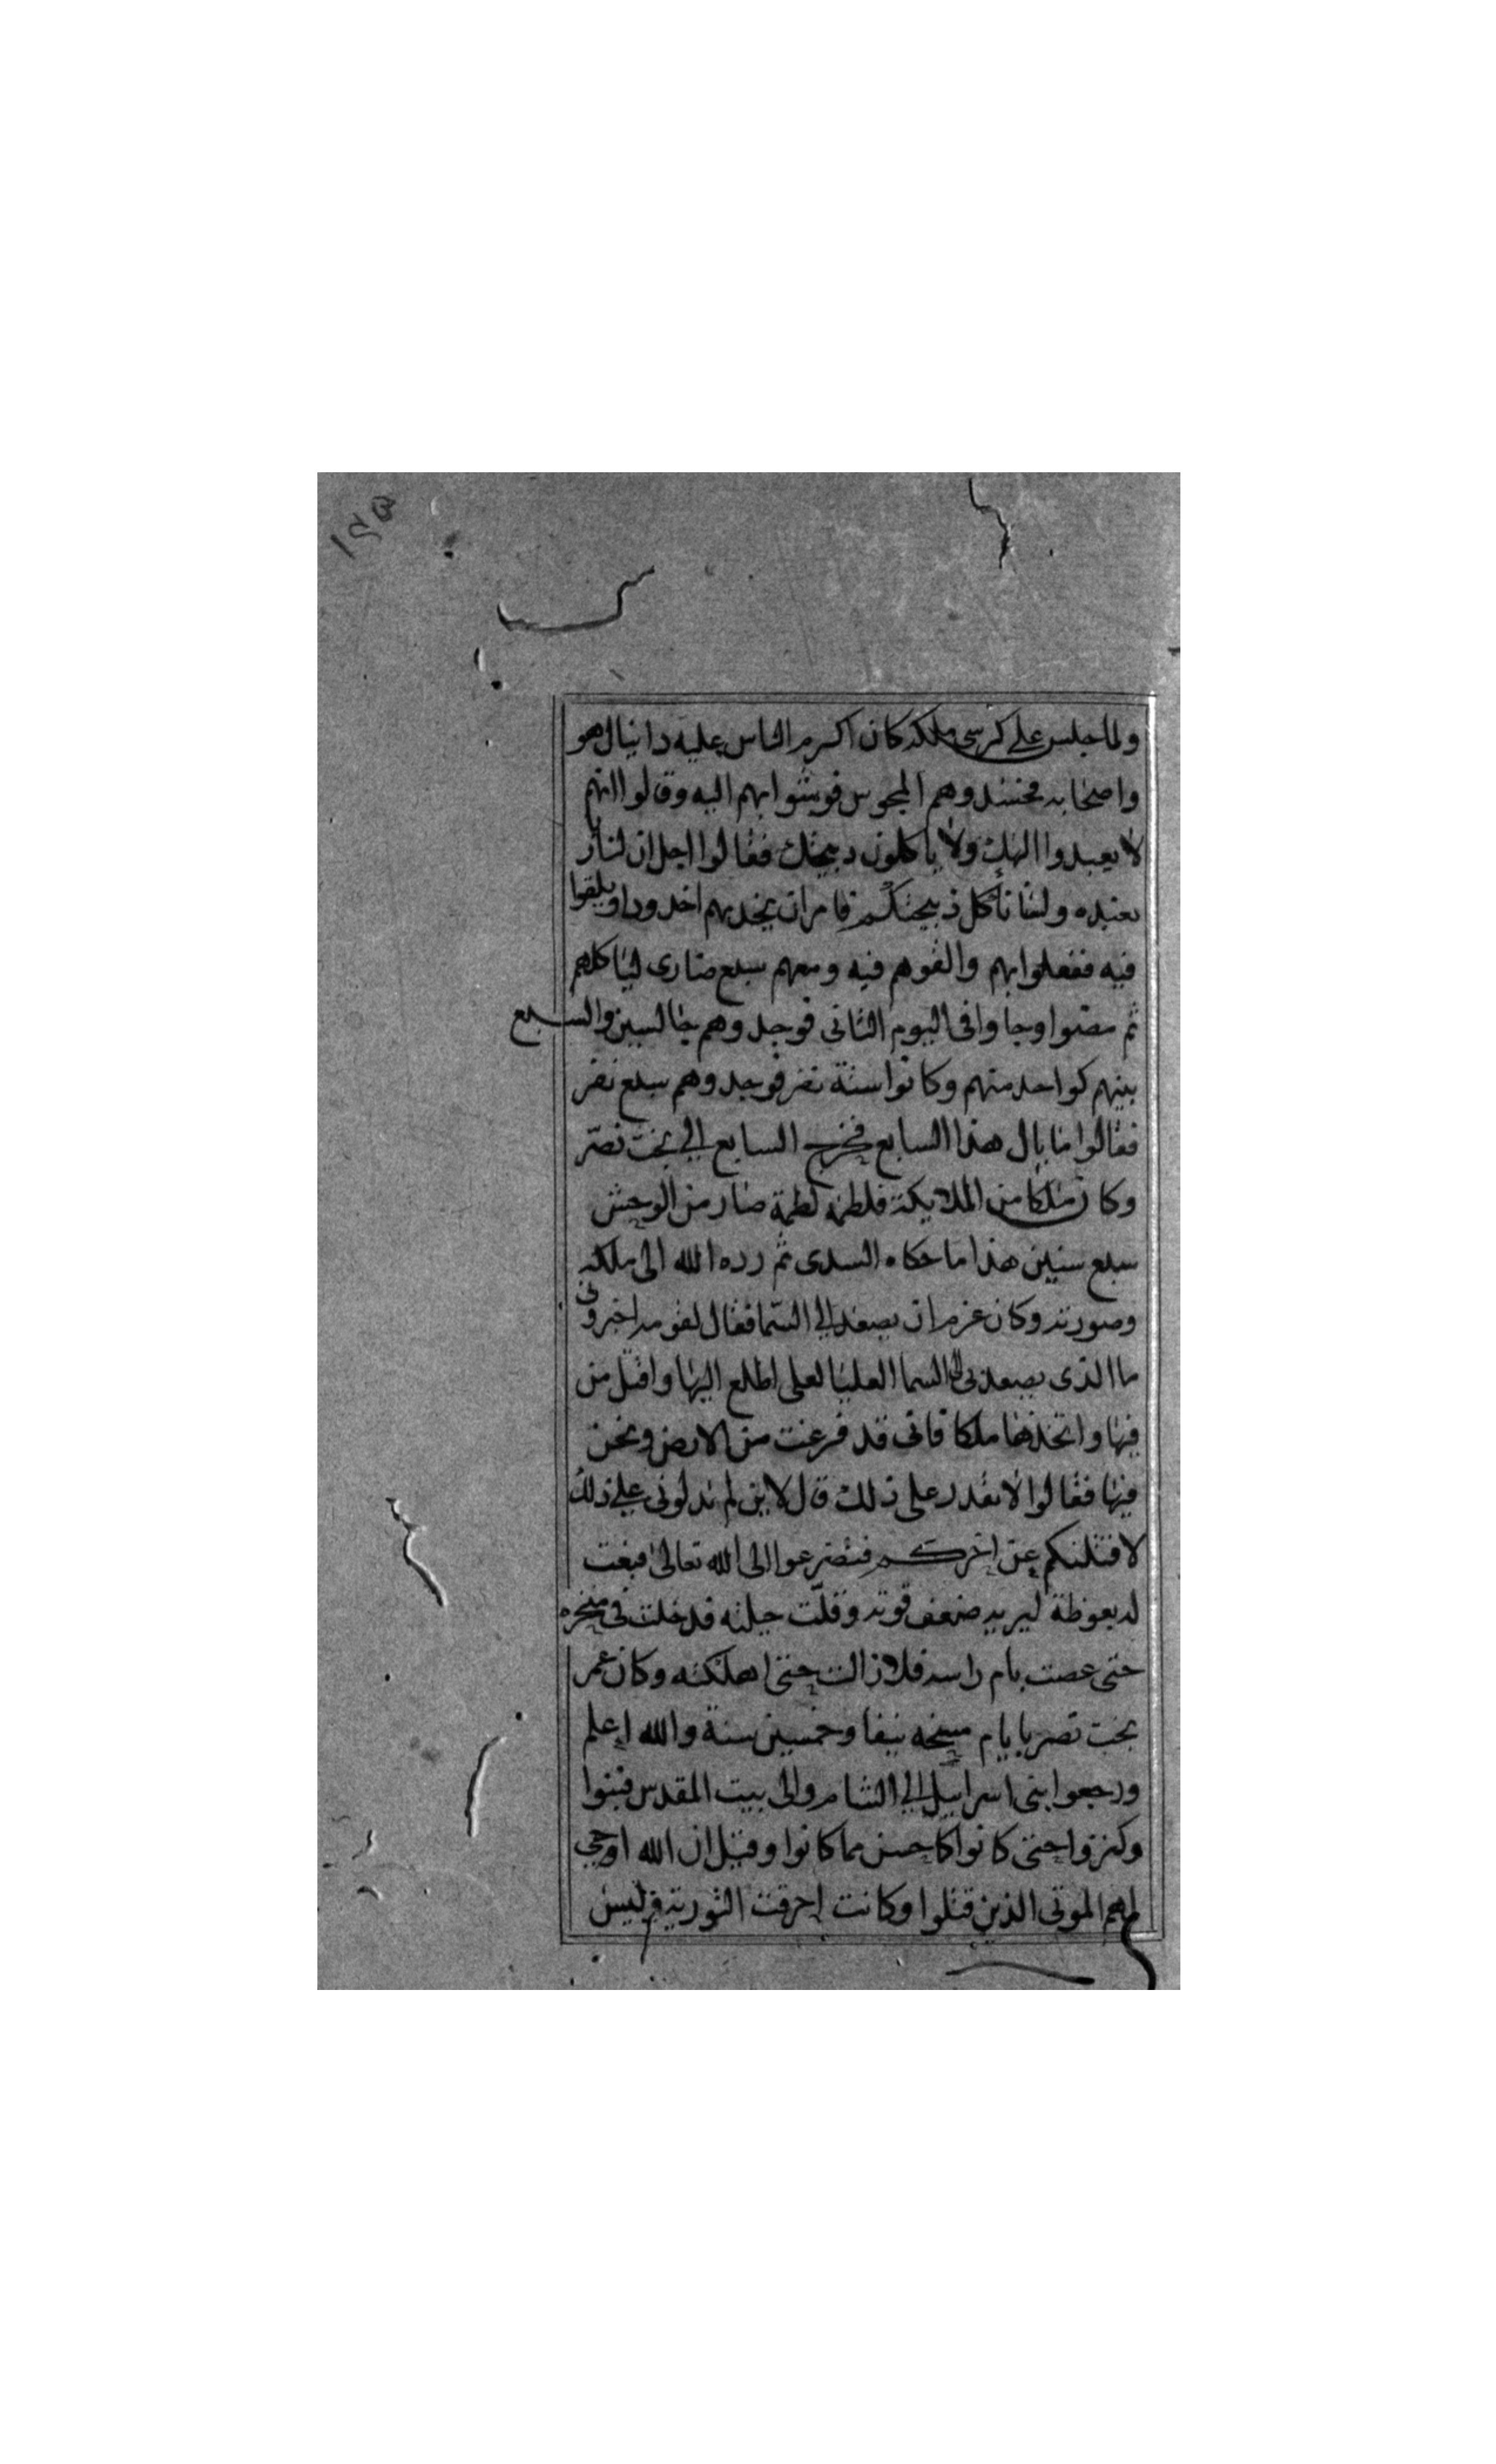 ولما جلس على كرسى ملكه كان اكرم الناس عليه دانيال هو
واصحابه فحسدوهم المجوس فوشوا بهم اليه وقالوا انهم
لا يعبدوا الهك ولا ياكلون دبيحتك فقالوا اجل ان لنا رب
نعبده ولسنا نأكل ذبيحتكم فامر ان يخد بهم اخدودا ويلقوا
فيه ففعلوا بهم والقوهم فيه ومعهم سبع ضارى لياكلهم
ثم مضوا وجاوا فى اليوم الثانى فوجدوهم جالسين والسبع
بينهم كواحد منهم وكانوا ستة نفر فوجدوهم سبع نفر
فقالوا ما بال هذا السابع فخرج السابع الى بخت نصر
وكان ملكا من الملايكة فلطمه لطمة صار من الوحش
سبع سنين هذا ما حكاه السدى ثم رده الله الى ملكه
وصورته وكان عزم ان يصعد الى السما فقال لقومه اخبرونى
ما الذى يصعد بى الى السما العليا لعلى اطلع اليها واقتل من
فيها واتخذها ملكا فانى قد فرغت من الارض ونحن
فيها فقالوا لا نقدر على ذلك قال لاين لم تدلونى على ذلك
لاقتلنكم عن اخركم فتضرعوا الى الله تعالى فبعث
له بعوظة ليريه ضعف قوته وقلّت حيلته فدخلت فى منخره
حتى عصت بام راسه فلا زالت حتى اهلكته وكان عمر
بخت نصر بايام مسخه نيفا وخمسين سنة والله اعلم
ورجعوا بنى اسراييل الى الشام والى بيت المقدس فبنوا
وكثروا حتى كانوا كاحسن مما كانوا وقيل ان الله اوحى
لهم الموتى الذين قتلوا وكانت احرقت التورية وليس